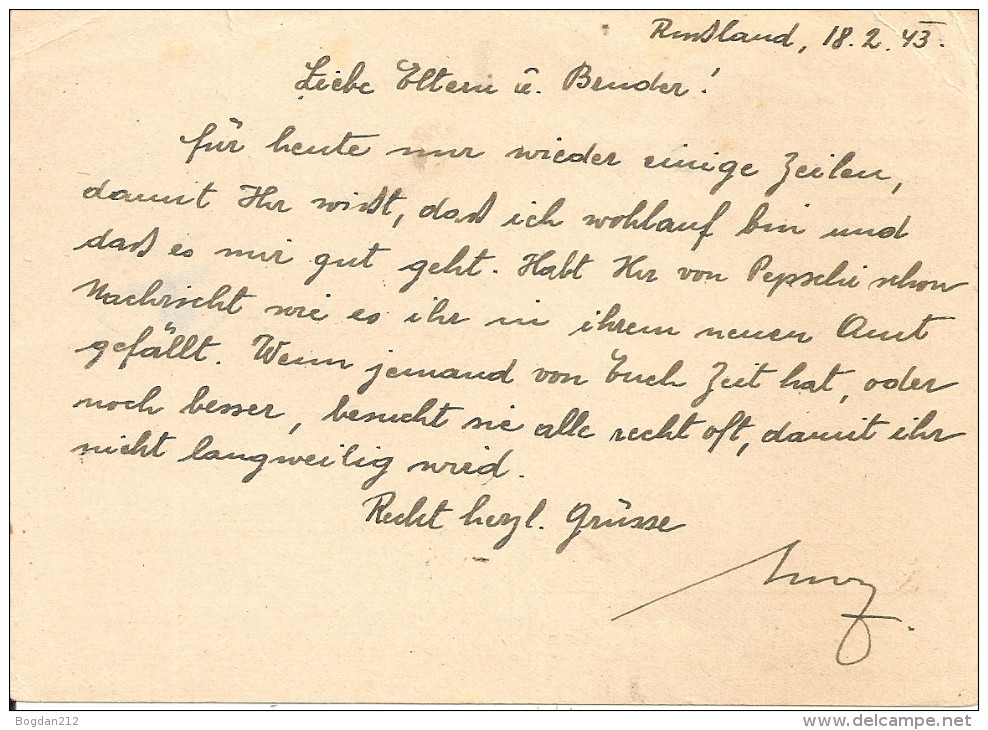 Rußland, 18.2.43.
Liebe Eltern u. Bruder!
für heute nur wieder einige Zeilen,
damit Ihr wißt, daß ich wohlauf bin und
daß es mir gut geht. Habt Ihr von Pepschi schon
Nachricht wie es ihr in ihrem neuen Amt
gefällt. Wenn jemand von Euch Zeit hat, oder
noch besser, besucht sie alle recht oft, damit ihr
nicht langweilig wird.
Recht herzl. Grüsse
Bogdan212
delcampe.net